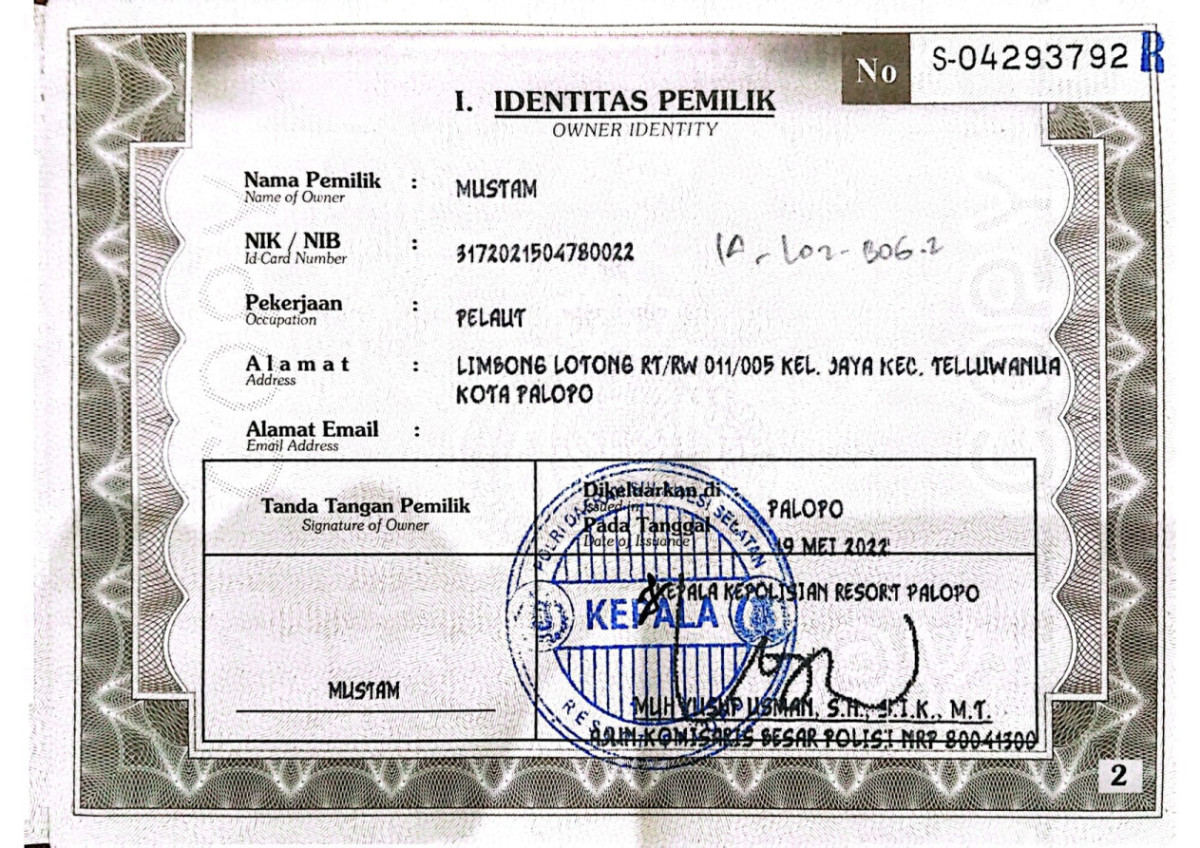 No S-04293792 R
I. IDENTITAS PEMILIK
OWNER IDENTITY
Nama Pemilik : MUSTAM
Name of Owner
NIK / NIB : 3172021504780022
Id Card Number
Pekerjaan : PELAUT
Occupation
Alamat : LIMBONG LOTONG RT/RW 011/005 KEL. JAYA KEC. TELLUWANUA
Address
KOTA PALOPO
Alamat Email :
Email Address
Tanda Tangan Pemilik
Signature of Owner
Dikeluarkan di PALOPO
Issued in
Pada Tanggal 19 MEI 2022
Date of Issuance
KEPALA KEPOLISIAN RESORT PALOPO
KEPALA
MUSTAM
MUH YUSUF USMAN, S.H., S.I.K., M.T.
AJUN KOMISARIS BESAR POLISI NRP 80041300
2